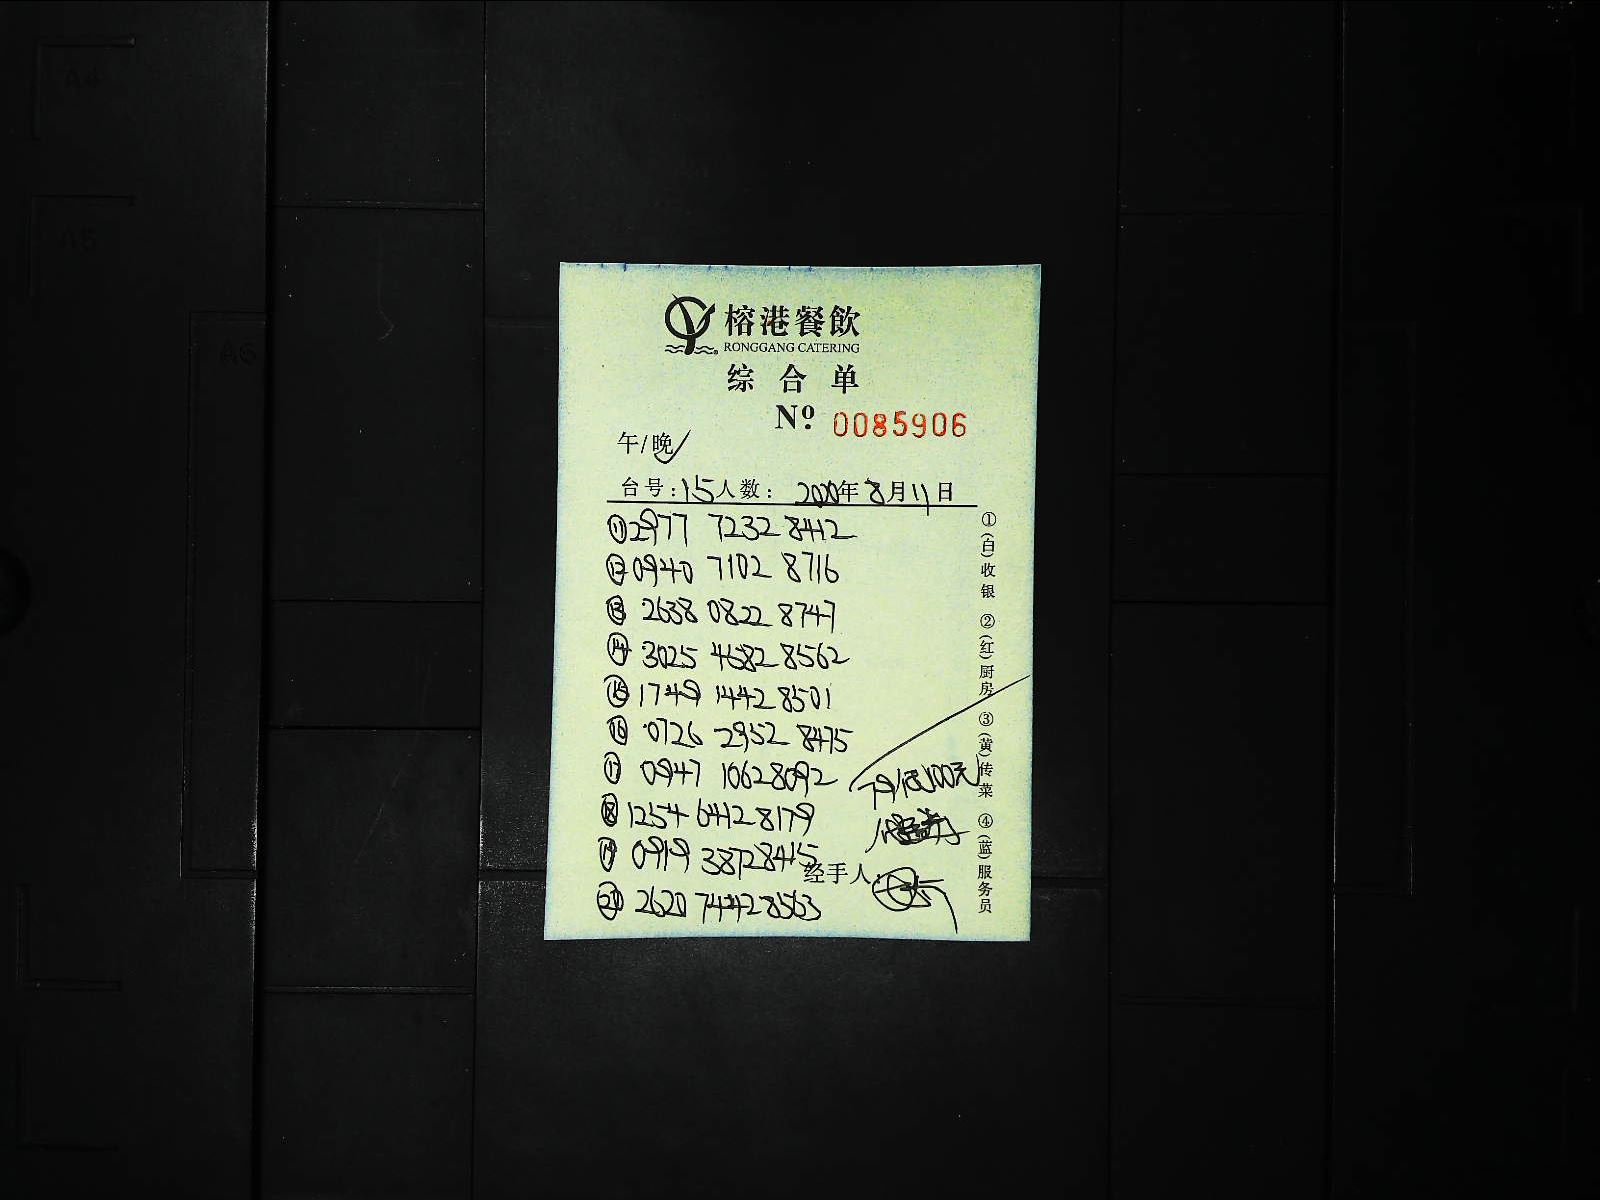 榕港餐飲
RONGGANG CATERING
综合单
Nº 0085906
午/晚
台号:15人数: 2020年8月11日
⑪2977 7232 8412
⑫0940 7102 8716
⑬ 2638 0822 8747
⑭ 3025 4682 8562
⑮ 1749 1442 8501
⑯ 0726 2952 8475
⑰ 0947 1062 8092
⑱ 1254 6412 8179
⑲ 0919 3872 8415
⑳ 2620 7442 8563
100元
经手人:
①(白)收银 ②(红)厨房 ③(黄)传菜 ④(蓝)服务员
A4
A5
A6